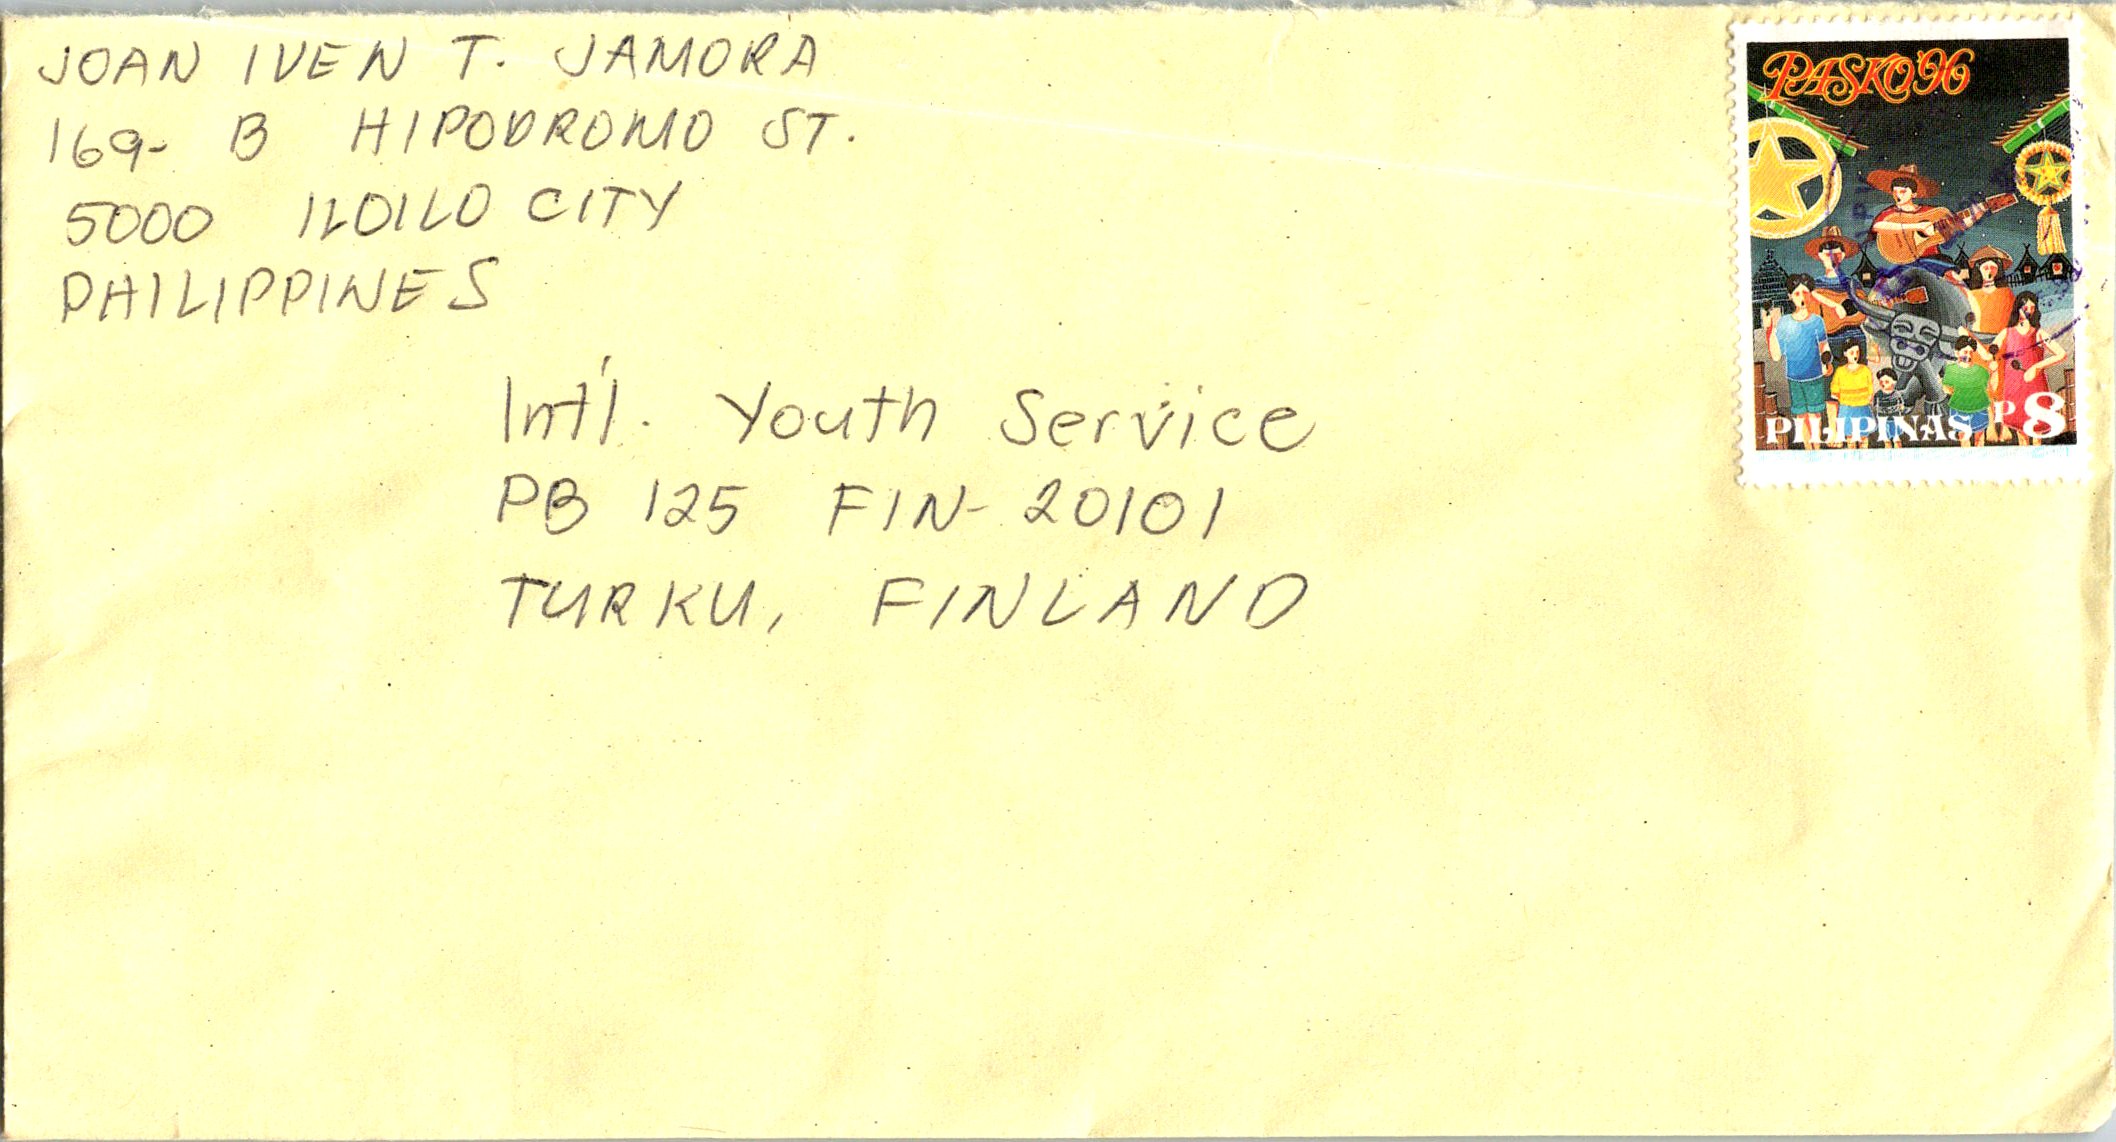 JOAN IVEN T. JAMORA
169- B HIPODROMO ST.
5000 ILOILO CITY
PHILIPPINES
Int'l. Youth Service
PB 125 FIN- 20101
TURKU, FINLAND
PASKO '96
PILIPINAS P8